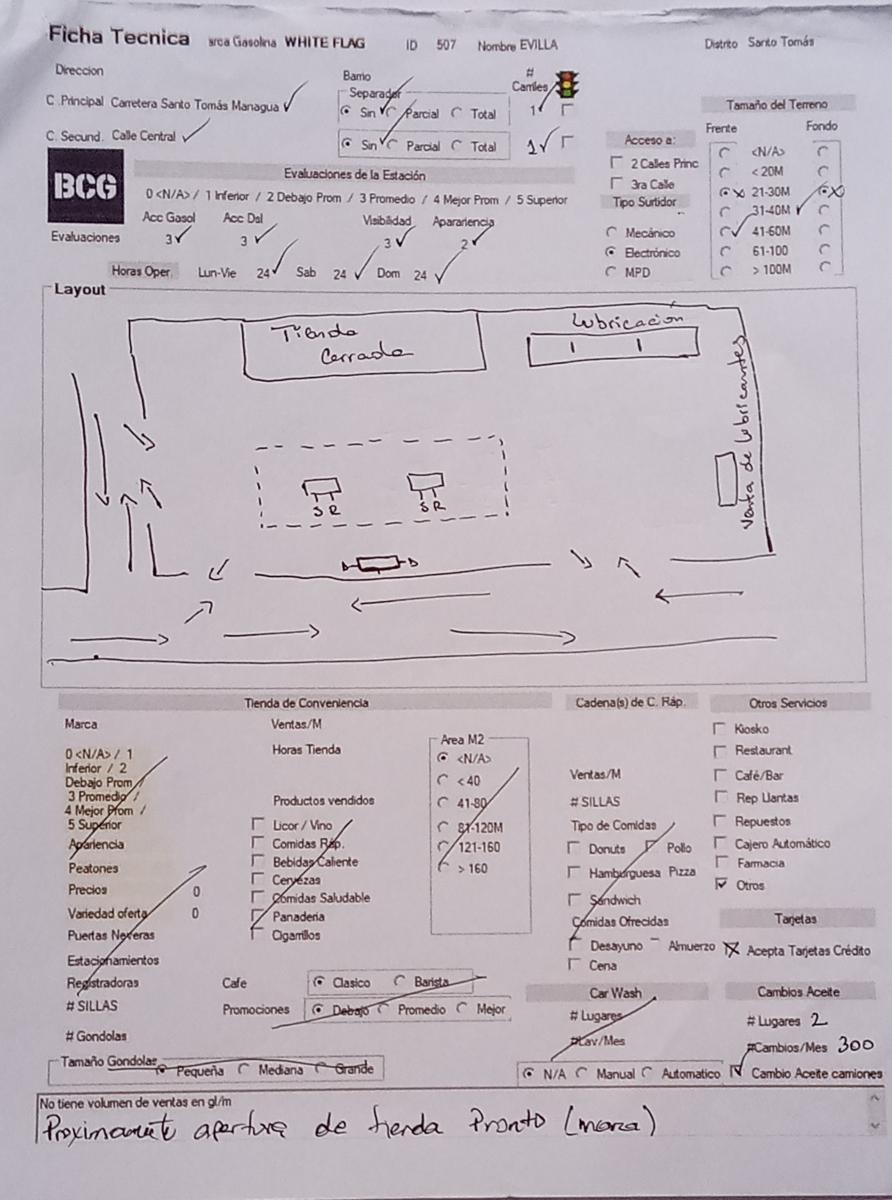 Ficha Tecnica arca Gasolina WHITE FLAG ID 507 Nombre EVILLA Distrito Santo Tomás
Direccion Barrio # Carriles
Separador
C .Principal Carretera Santo Tomás Managua Sin Parcial Total 1
C. Secund. Calle Central Sin Parcial Total 1
Tamaño del Terreno
Frente Fondo
<N/A>
< 20M
21-30M
31-40M
41-60M
61-100
> 100M
Acceso a:
2 Calles Princ
3ra Calle
Tipo Surtidor
Mecánico
Electrónico
MPD
BCG
Evaluaciones de la Estación
0 <N/A> / 1 Inferior / 2 Debajo Prom / 3 Promedio / 4 Mejor Prom / 5 Superior
Acc Gasol Acc Dsl Visibilidad Aparariencia
Evaluaciones 3 3 3 2
Horas Oper. Lun-Vie 24 Sab 24 Dom 24
Layout
Tienda
Cerrada
Lubricación
Venta de lubricantes
S R
S R
Tienda de Conveniencia
Marca
0 <N/A> / 1
Inferior / 2
Debajo Prom /
3 Promedio /
4 Mejor Prom /
5 Superior
Apariencia
Peatones
Precios 0
Variedad oferta 0
Puertas Neveras
Estacionamientos
Registradoras
# SILLAS
# Gondolas
Ventas/M
Horas Tienda
Productos vendidos
Licor / Vino
Comidas Ráp.
Bebidas Caliente
Cervezas
Comidas Saludable
Panaderia
Cigarrillos
Area M2
<N/A>
< 40
41-80
81-120M
121-160
> 160
Cafe Clasico Barista
Promociones Debajo Promedio Mejor
Tamaño Gondolas Pequeña Mediana Grande
Cadena(s) de C. Ráp.
Ventas/M
# SILLAS
Tipo de Comidas
Donuts Pollo
Hamburguesa Pizza
Sandwich
Comidas Ofrecidas
Desayuno Almuerzo
Cena
Car Wash
# Lugares
#Lav/Mes
N/A Manual Automatico
Otros Servicios
Kiosko
Restaurant
Café/Bar
Rep Llantas
Repuestos
Cajero Automático
Farmacia
Otros
Tarjetas
Acepta Tarjetas Crédito
Cambios Aceite
# Lugares 2
#Cambios/Mes 300
Cambio Aceite camiones
No tiene volumen de ventas en gl/m
Proximamente apertura de tienda Pronto (marca)